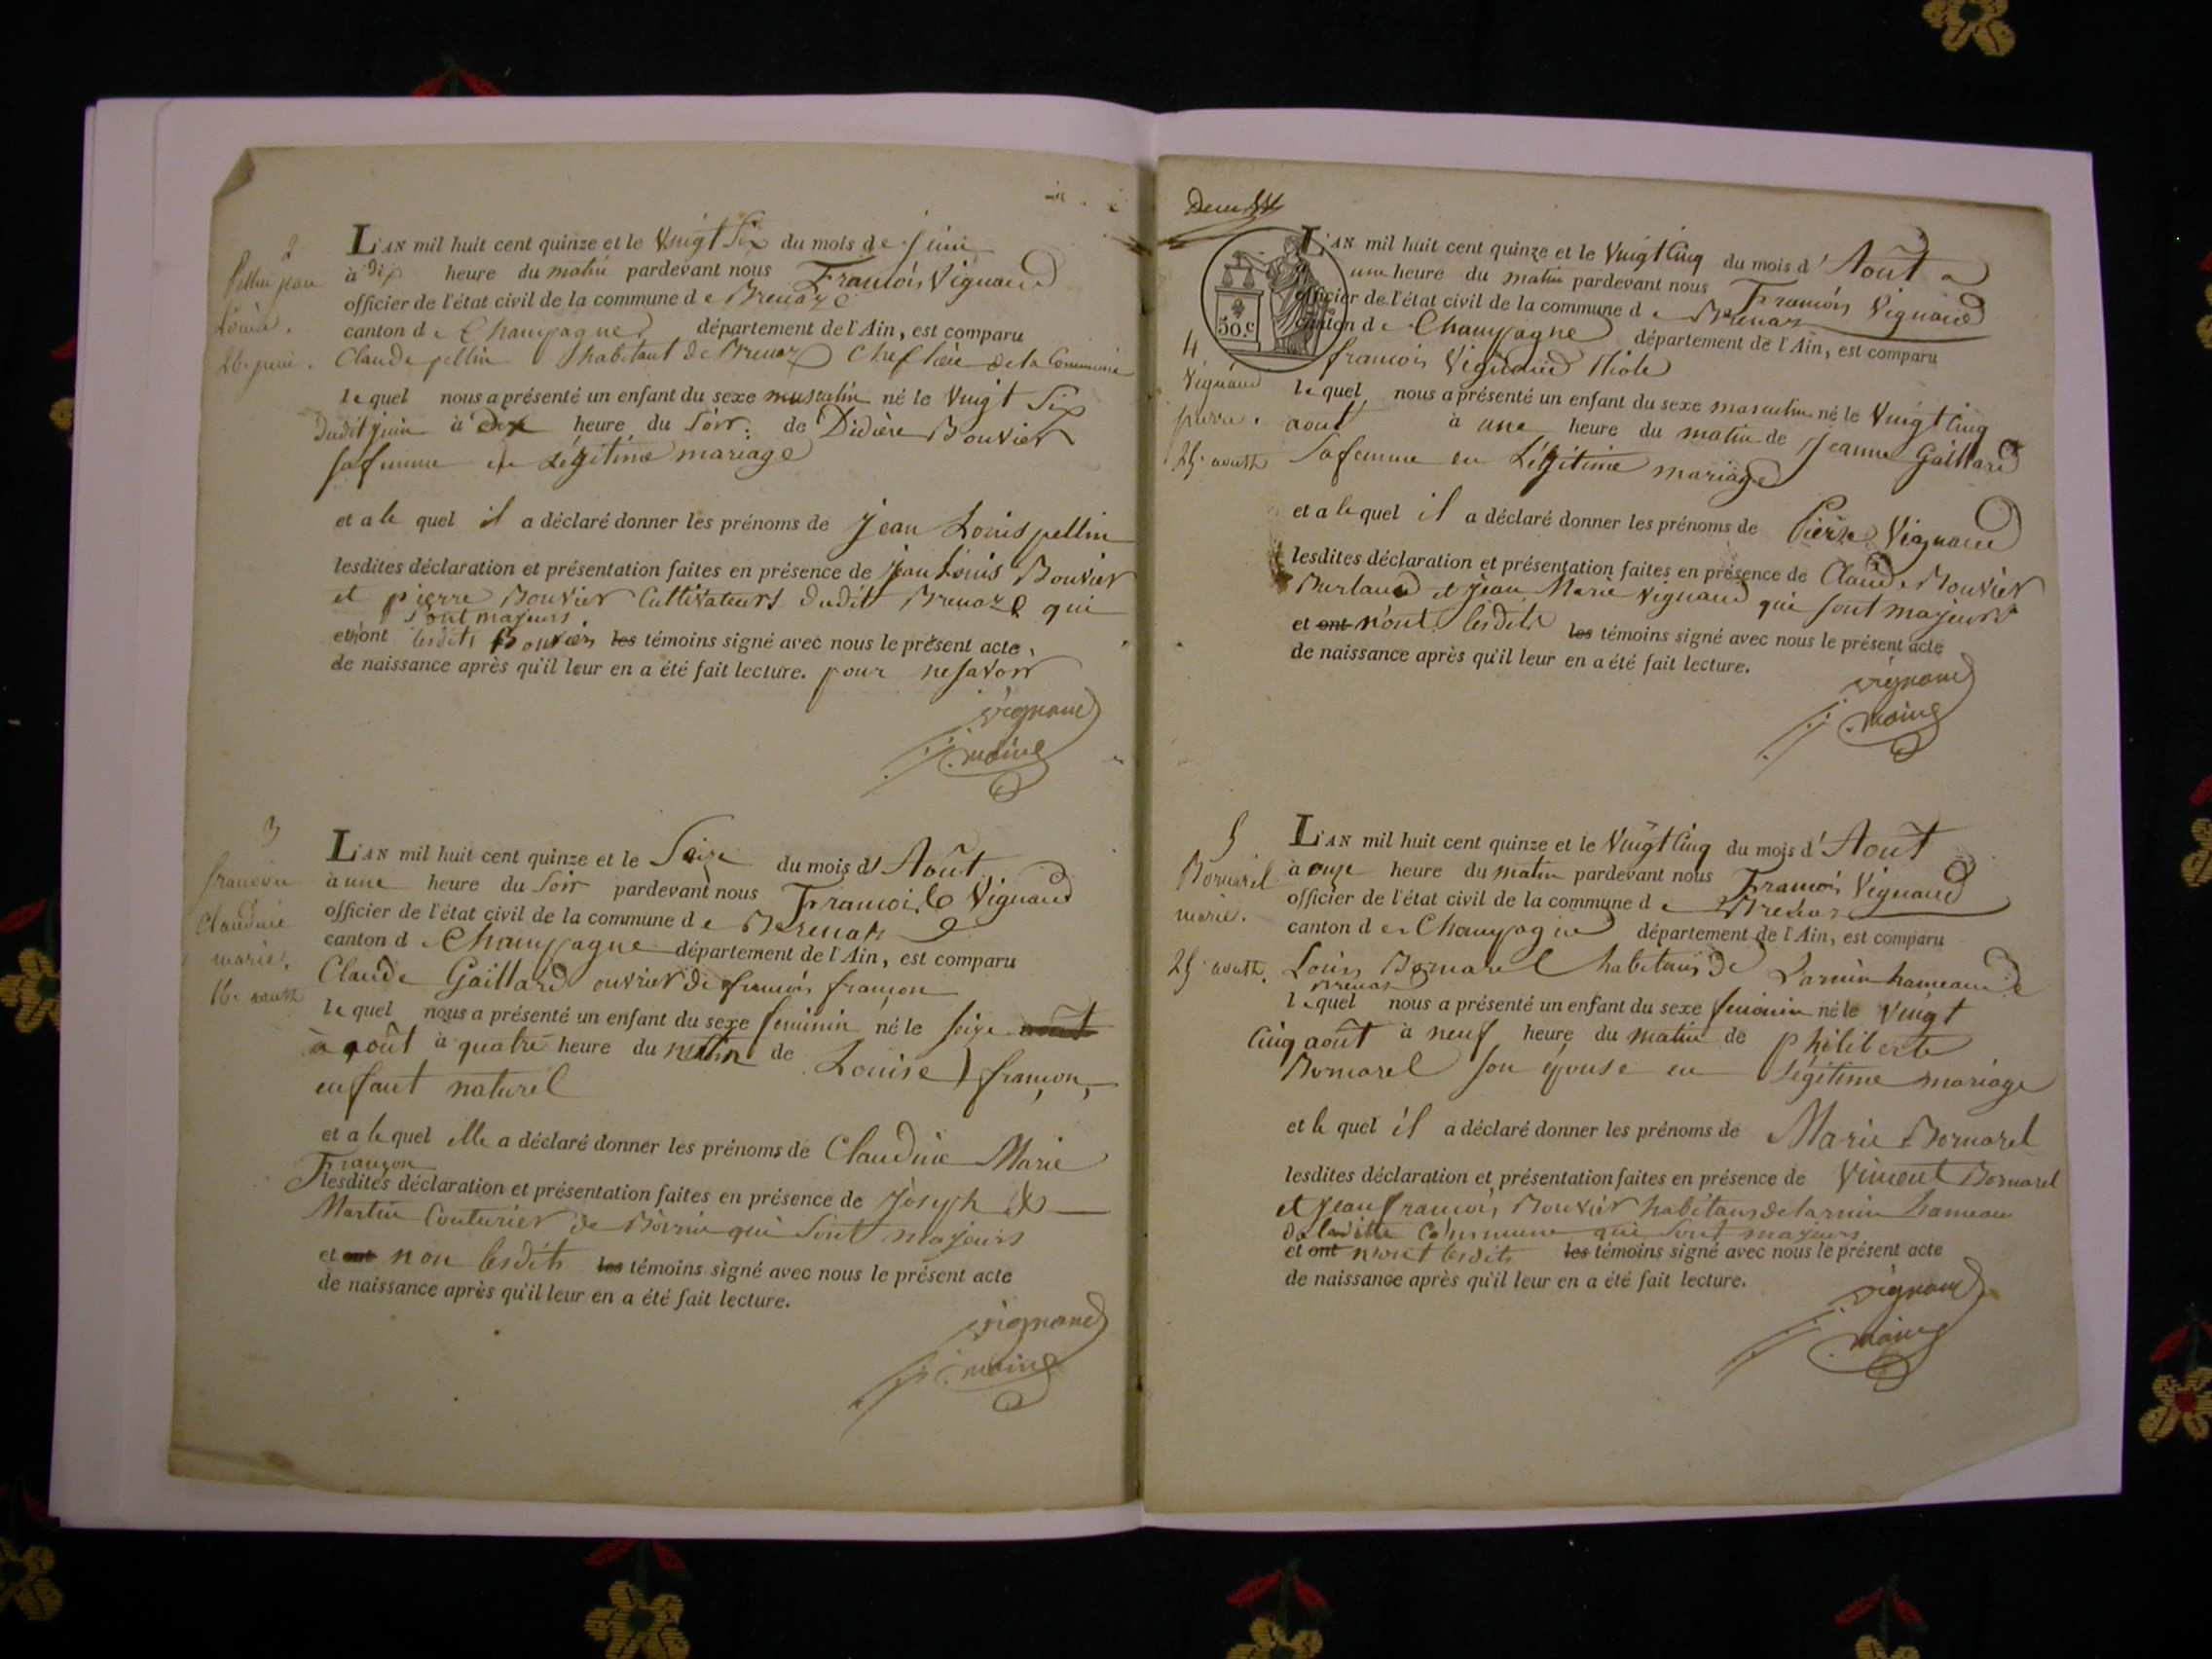 2
Pellin jean
Louis.
26. juin.
L'AN mil huit cent quinze et le Vingt Six du mois de juin
à dix heure du matin pardevant nous François Vignaud
officier de l'état civil de la commune de Brenaze
canton de Champagne département de l'Ain, est comparu
Claude pellin habitant de Brenaz Chef lieu de la Commune
lequel nous a présenté un enfant du sexe musculin né le Vingt Six
dudit juin à dix heure du Soir de Didière Bouvier
sa femme en Légitime mariage
et a le quel il a déclaré donner les prénoms de jean Louis pellin
lesdites déclaration et présentation faites en présence de jean Louis Bouvier
et pierre Bouvier Cultivateurs dudit Brenaze qui
sont majeurs
et n'ont lesdits Bouvier les témoins signé avec nous le présent acte,
de naissance après qu'il leur en a été fait lecture. pour ne savoir
Vignaud
maire
3
françon
Claudine
marie.
16. aoust
L'AN mil huit cent quinze et le Seize du mois d'Août
à une heure du Soir pardevant nous François Vignaud
officier de l'état civil de la commune de Brenaz
canton de Champagne département de l'Ain, est comparu
Claude Gaillard ouvrier de françois françon
lequel nous a présenté un enfant du sexe feminin né le seize aout
août à quatre heure du matin de Louise françon,
enfant naturel
et a lequel elle a déclaré donner les prénoms de Claudine Marie
Françon
lesdites déclaration et présentation faites en présence de Joseph &
Martin Couturier de qui sont majeurs
et ont non lesdits les témoins signé avec nous le présent acte
de naissance après qu'il leur en a été fait lecture.
Vignaud
maire
50.C
4
Vignaud
pierre.
25. aoust
L'AN mil huit cent quinze et le Vingt Cinq du mois d'Août a
une heure du matin pardevant nous François Vignaud
officier de l'état civil de la commune de Brenaz
canton de Champagne département de l'Ain, est comparu
francois Vignaud
lequel nous a présenté un enfant du sexe masculin né le Vingt Cinq
aout à une heure du matin de Jeanne Gaillard
Sa femme en Légitime mariage
et a lequel il a déclaré donner les prénoms de Pierre Vignaud
lesdites déclaration et présentation faites en présence de Claude Bouvier
Burland et jean Marie Vignaud qui sont majeurs
et ont n'ont lesdits les témoins signé avec nous le présent acte
de naissance après qu'il leur en a été fait lecture.
Vignaud
maire
5
Bornarel
marie.
25. aoust.
L'AN mil huit cent quinze et le Vingt Cinq du mois d'Août
à onze heure du matin pardevant nous François Vignaud
officier de l'état civil de la commune de Brenaz
canton de Champagne département de l'Ain, est comparu
Louis Bornarel habitans de Larnin hameau de
Brenaz
lequel nous a présenté un enfant du sexe feminin né le Vingt
Cinq août à neuf heure du matin de philiberte
Bornarel son épouse en Légitime mariage
et le quel il a déclaré donner les prénoms de Marie Bornarel
lesdites déclaration et présentation faites en présence de Vincent Bornarel
et jean francois Bouvier habitans de larnin hameau
de laditte Commune qui sont majeurs
et ont n'ont lesdits les témoins signé avec nous le présent acte
de naissance après qu'il leur en a été fait lecture.
Vignaud
maire